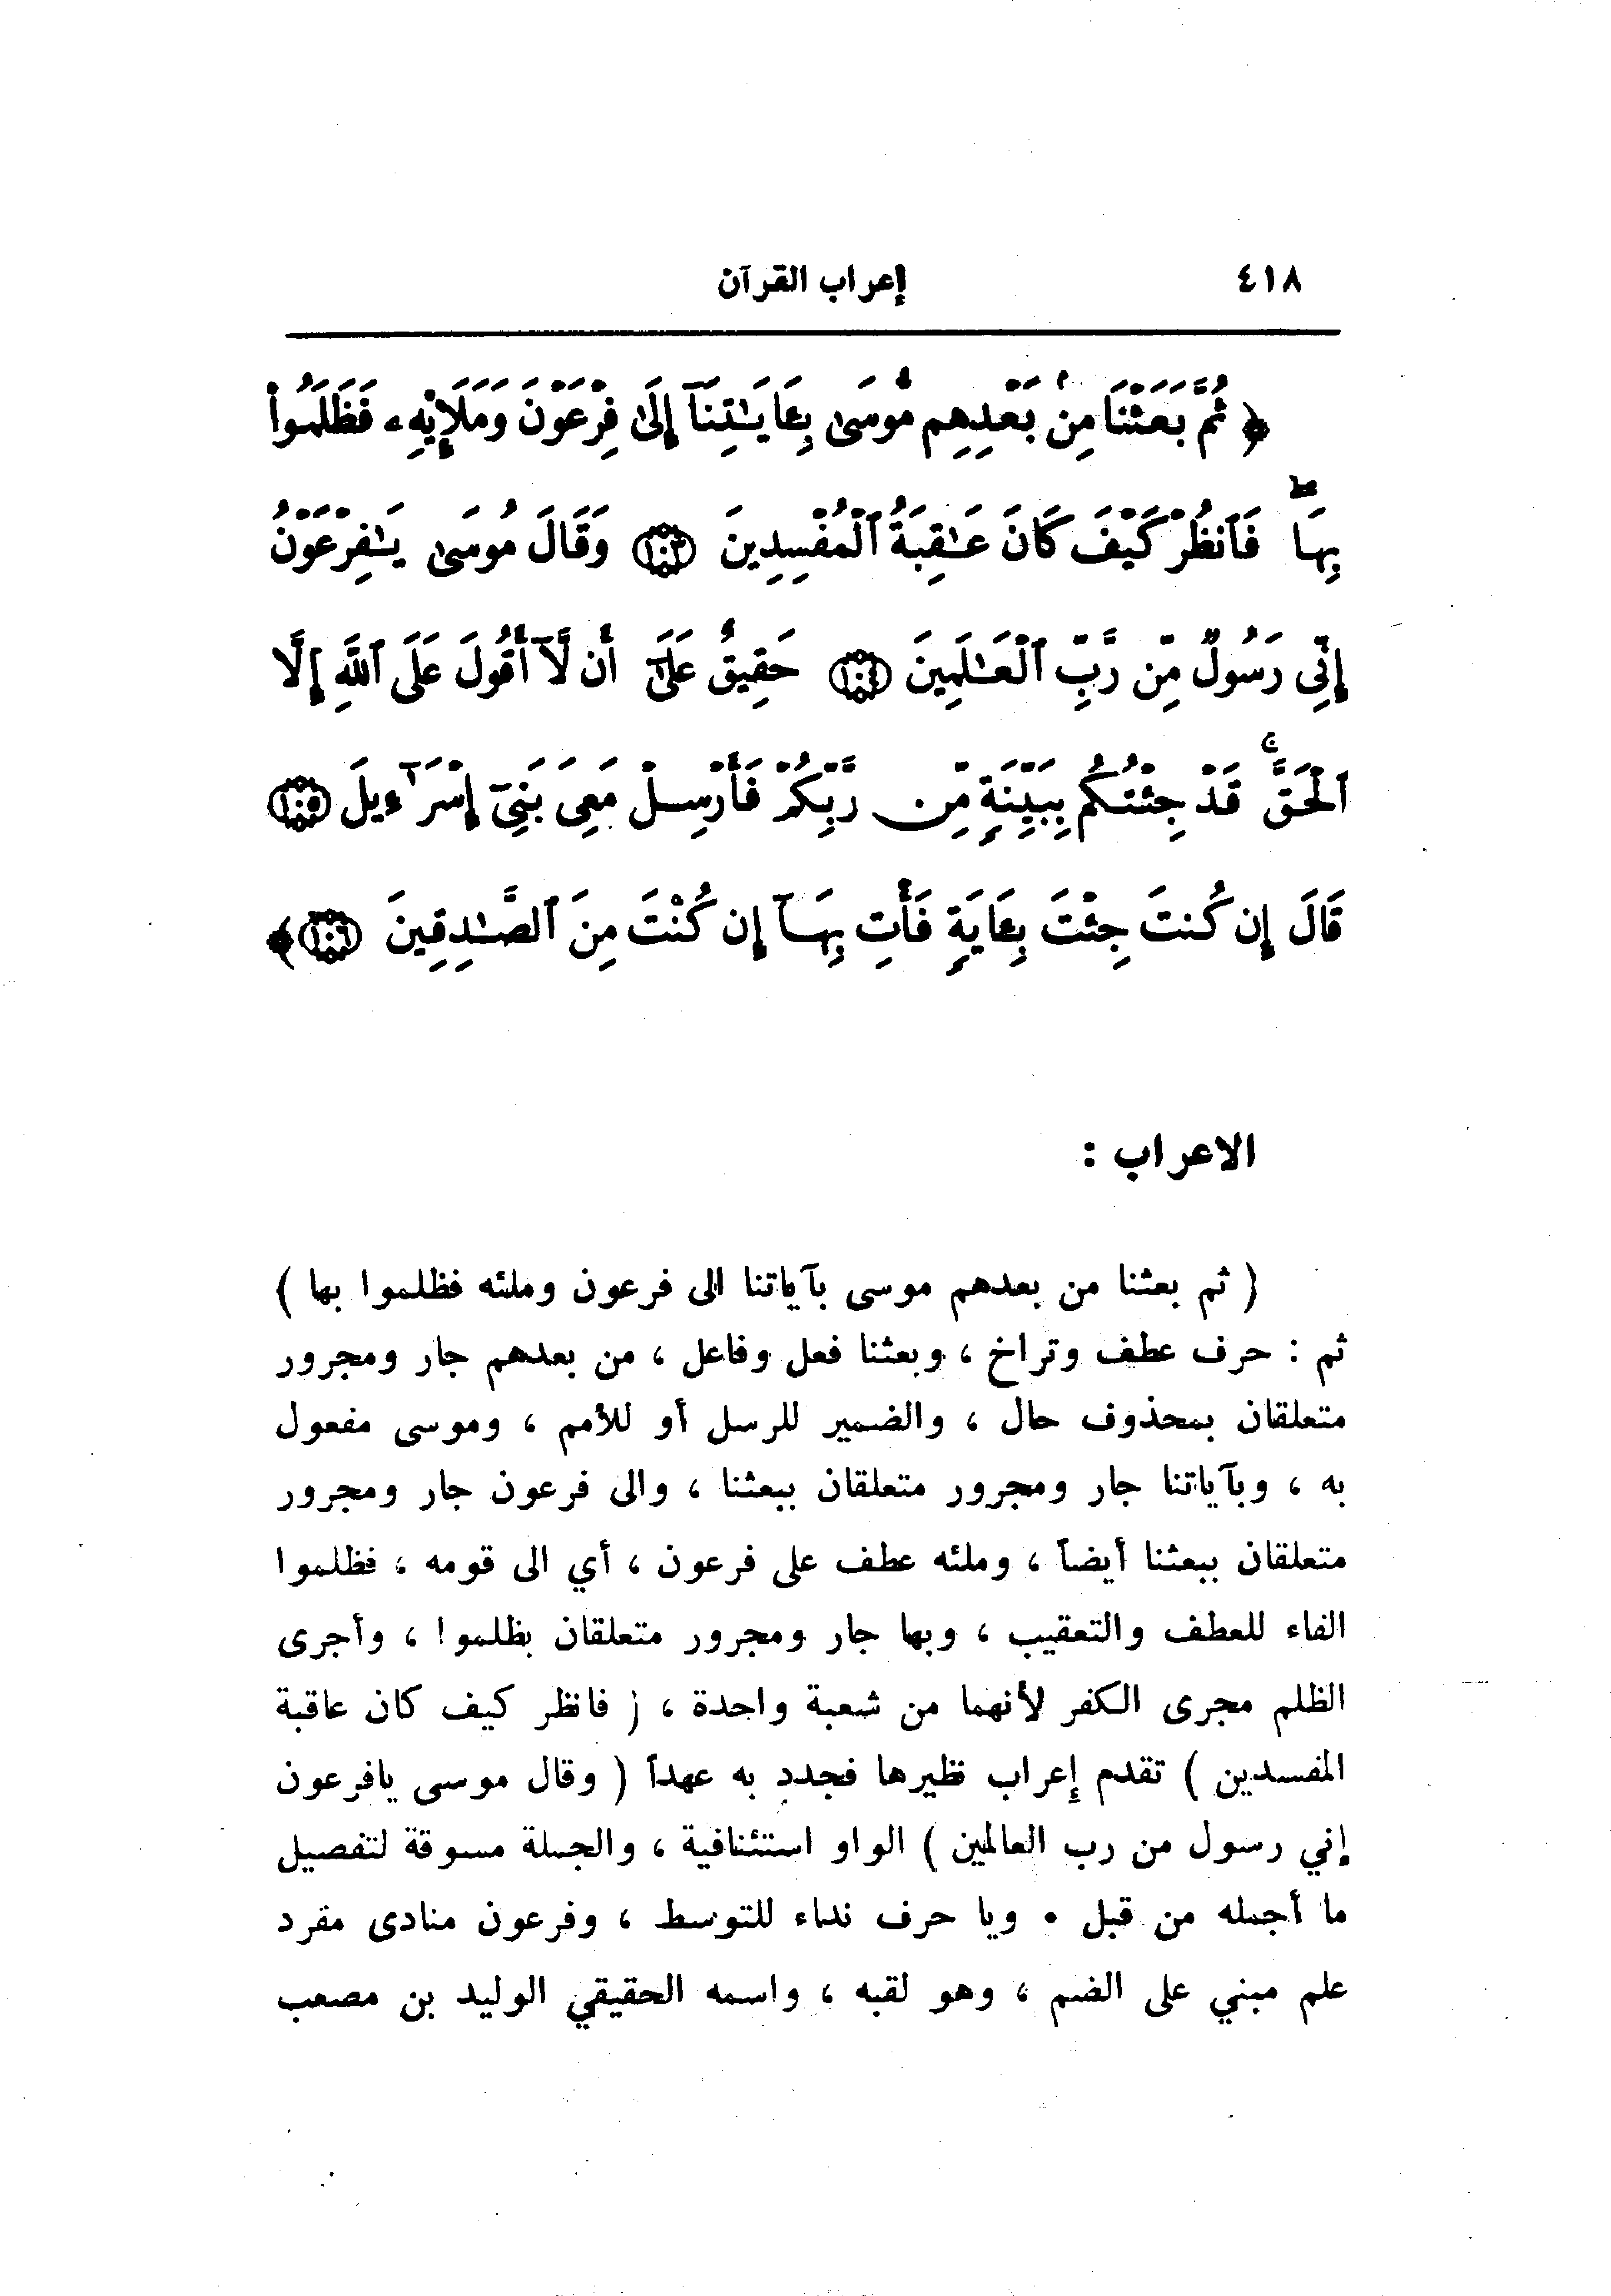 ٤١٨
إعراب القرآن
﴿ ثُمَّ بَعَثْنَا مِنۢ بَعْدِهِم مُّوسَىٰ بِـَٔايَـٰتِنَآ إِلَىٰ فِرْعَوْنَ وَمَلَإِيْهِۦ فَظَلَمُوا۟
بِهَا ۖ فَٱنظُرْ كَيْفَ كَانَ عَـٰقِبَةُ ٱلْمُفْسِدِينَ ١٠٣ وَقَالَ مُوسَىٰ يَـٰفِرْعَوْنُ
إِنِّى رَسُولٌ مِّن رَّبِّ ٱلْعَـٰلَمِينَ ١٠٤ حَقِيقٌ عَلَىٰٓ أَن لَّآ أَقُولَ عَلَى ٱللَّهِ إِلَّا
ٱلْحَقَّ ۚ قَدْ جِئْتُكُم بِبَيِّنَةٍ مِّن رَّبِّكُمْ فَأَرْسِلْ مَعِىَ بَنِىٓ إِسْرَٰٓءِيلَ ١٠٥
قَالَ إِن كُنتَ جِئْتَ بِـَٔايَةٍ فَأْتِ بِهَآ إِن كُنْتَ مِنَ ٱلصَّـٰدِقِينَ ١٠٦ ﴾
الاعراب :
( ثم بعثنا من بعدهم موسى بآياتنا الى فرعون وملئه فظلموا بها )
ثم : حرف عطف وتراخ ، وبعثنا فعل وفاعل ، من بعدهم جار ومجرور
متعلقان بمحذوف حال ، والضمير للرسل أو للأمم ، وموسى مفعول
به ، وبآياتنا جار ومجرور متعلقان ببعثنا ، والى فرعون جار ومجرور
متعلقان ببعثنا أيضاً ، وملئه عطف على فرعون ، أي الى قومه ، فظلموا
الفاء للعطف والتعقيب ، وبها جار ومجرور متعلقان بظلموا ، وأجرى
الظلم مجرى الكفر لأنهما من شعبة واحدة ، ( فانظر كيف كان عاقبة
المفسدين ) تقدم إعراب نظيرها فجدد به عهداً ( وقال موسى يافرعون
إني رسول من رب العالمين ) الواو استئنافية ، والجملة مسوقة لتفصيل
ما أجمله من قبل . ويا حرف نداء للتوسط ، وفرعون منادى مفرد
علم مبني على الضم ، وهو لقبه ، واسمه الحقيقي الوليد بن مصعب